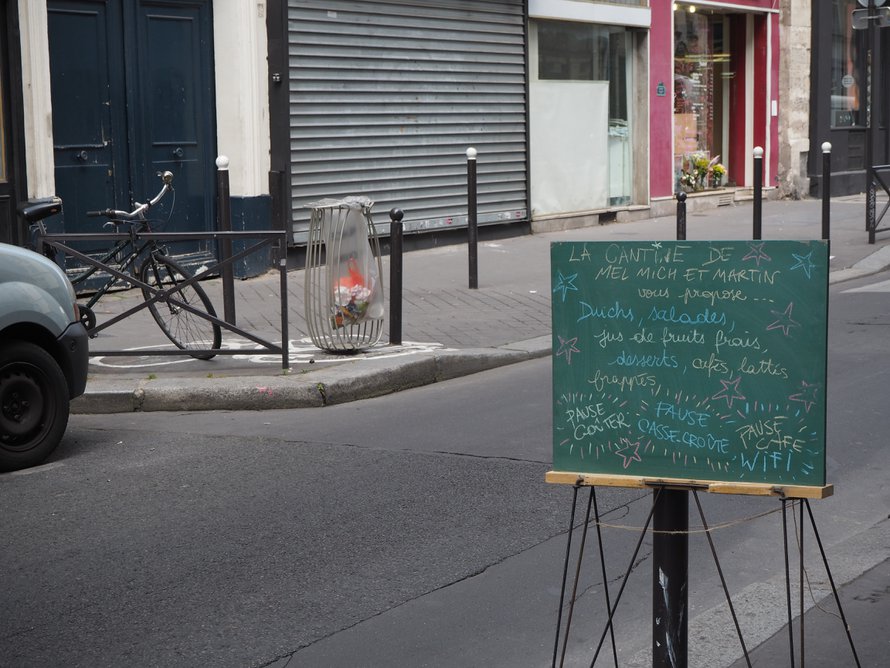 LA CANTINE DE
MEL MICH ET MARTIN
vous propose...
Duichs, salades,
jus de fruits frais,
desserts, cafés, lattés
frappés
PAUSE GOÛTER
PAUSE CASSE-CROÛTE
PAUSE CAFE
WIFI